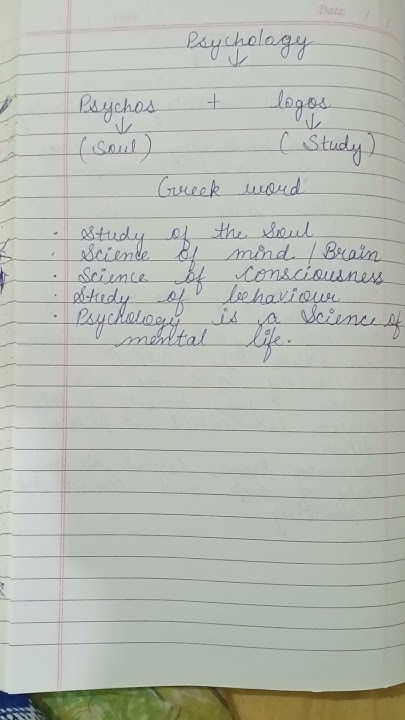 Date / /
Psychology
↓
Psychos + logos
↓ ↓
(Soul) (Study)
Greek word
· Study of the Soul
· Science of mind / Brain
· Science of Consciousness
· Study of behaviour
· Psychology is a Science of
mental life.